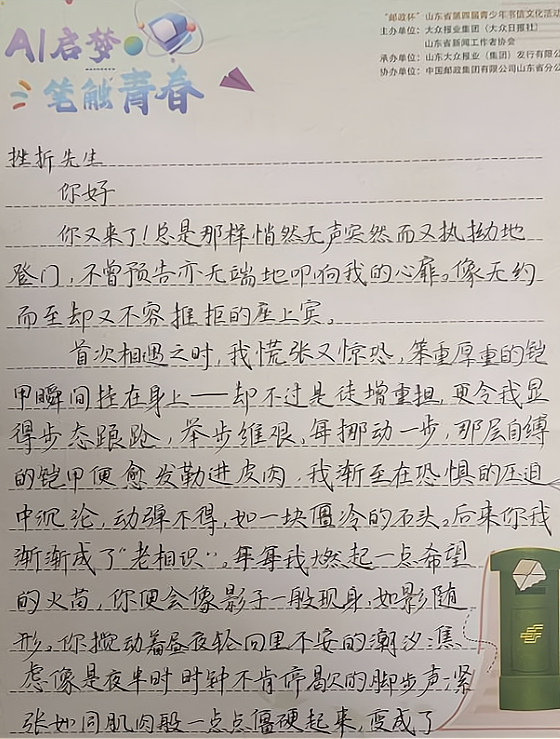 "邮政杯"山东省第四届青少年书信文化活动
主办单位：大众报业集团（大众日报社）
山东省新闻工作者协会
承办单位：山东大众报业（集团）发行有限公
协办单位：中国邮政集团有限公司山东省分公
AI启梦
笔触青春
挫折先生
你好
你又来了！总是那样悄然无声突然而又执拗地
登门，不曾预告亦无端地叩响我的心扉。像无约
而至却又不容推拒的座上宾。
首次相遇之时，我慌张又惊恐，笨重厚重的铠
甲瞬间挂在身上——却不过是徒增重担，更令我显
得步态踉跄，举步维艰，每挪动一步，那层自缚
的铠甲便愈发勒进皮肉，我渐至在恐惧的压迫
中沉沦，动弹不得，如一块僵冷的石头。后来你我
渐渐成了"老相识"。每每我燃起一点希望
的火苗，你便会像影子一般现身，如影随
形。你搅动着昼夜轮回里不安的潮汐：焦
虑像是夜半时时钟不肯停歇的脚步声；紧
张如同肌肉般一点点僵硬起来，变成了